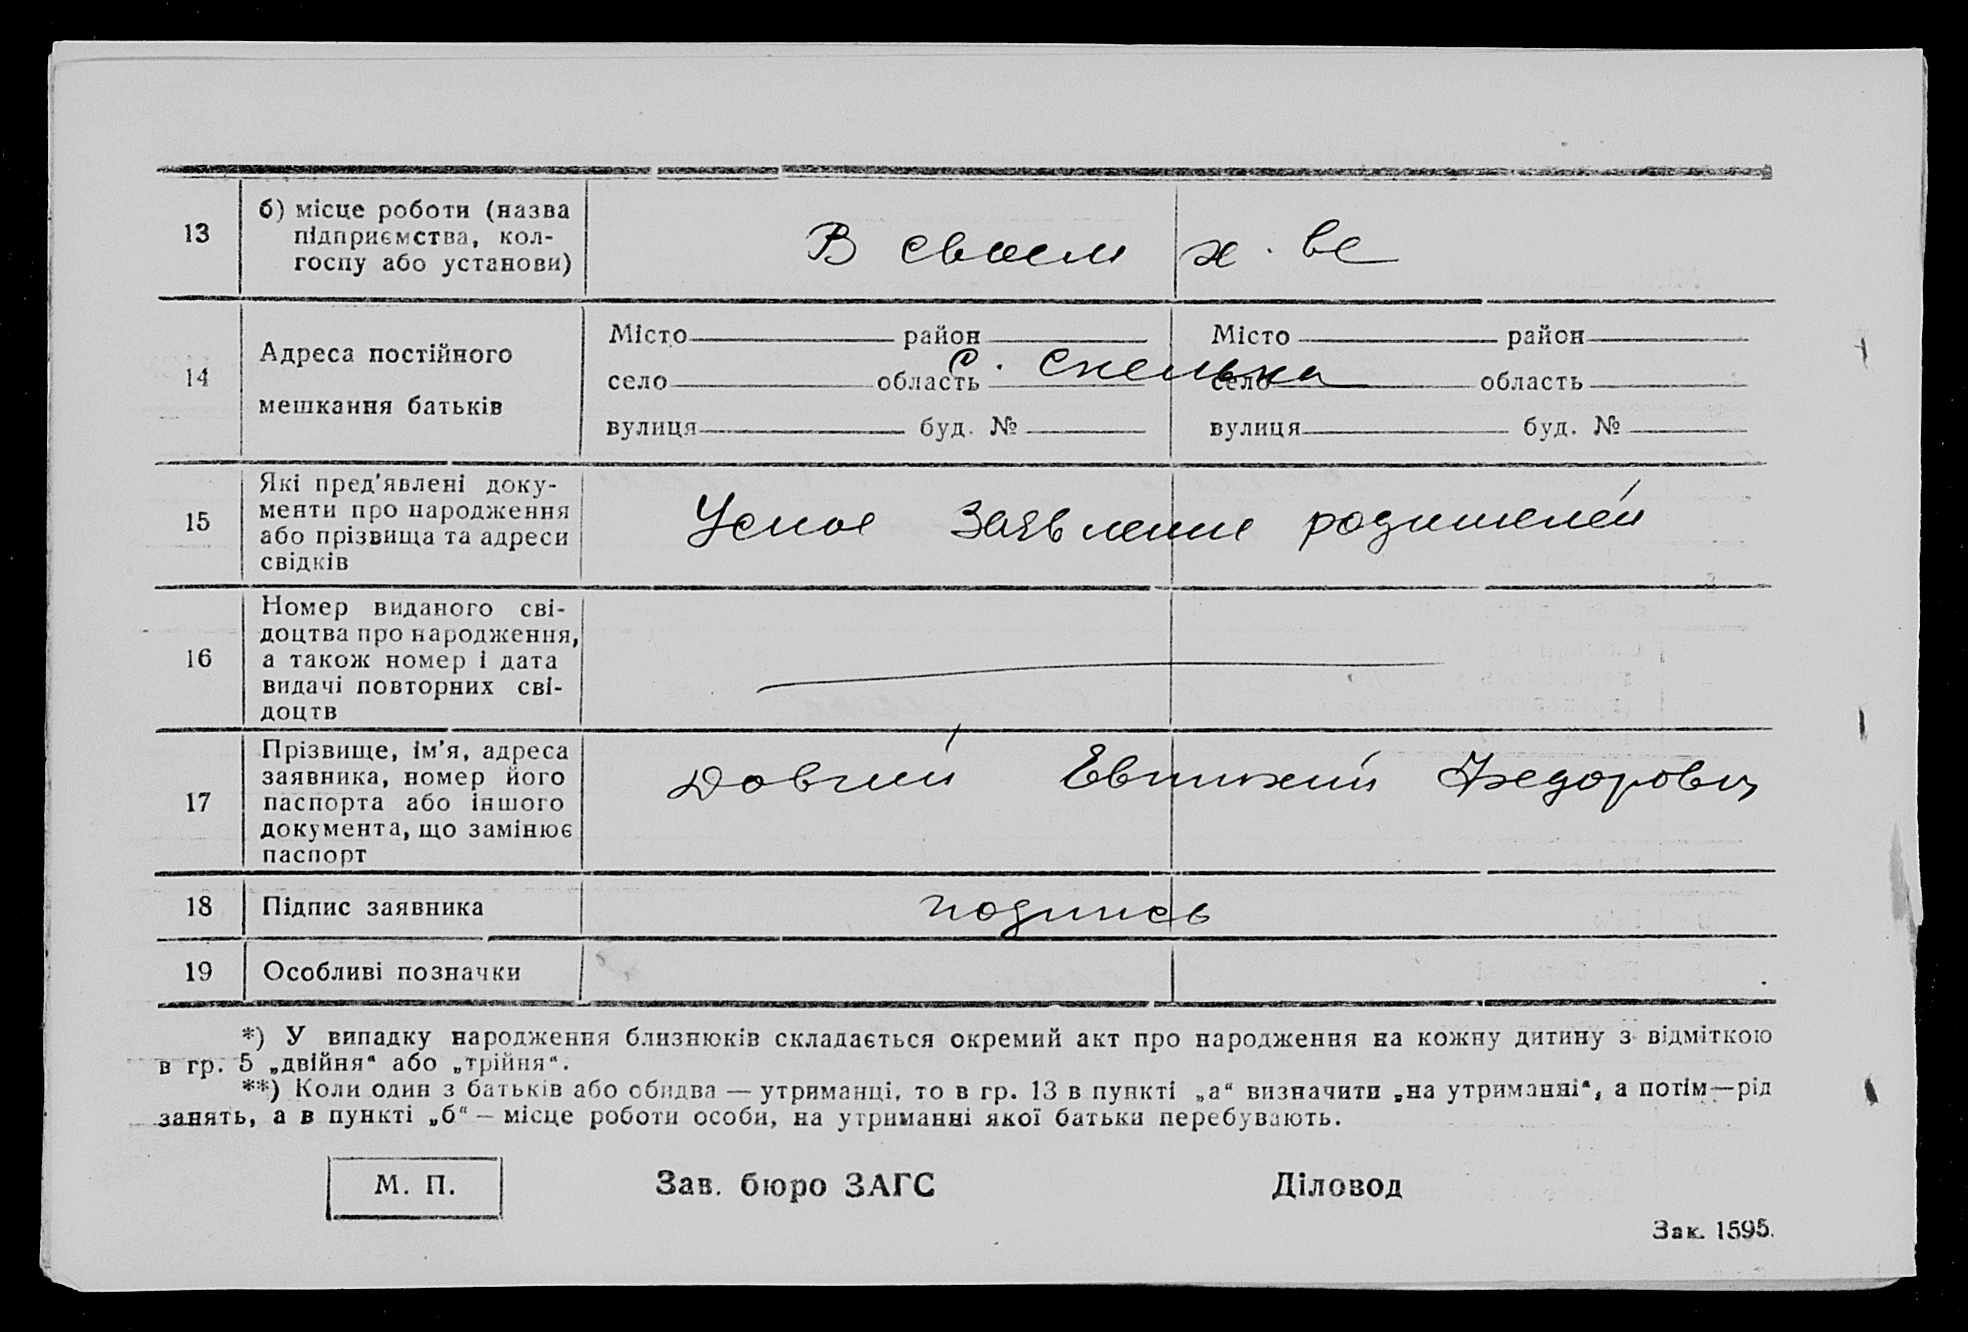 13
б) місце роботи (назва
підприємства, кол-
госпу або установи)
В своем х-ве
14
Адреса постійного
мешкання батьків
Місто район
село область
вулиця буд. №
Місто район
село область
вулиця буд. №
с. Скелька
15
Які пред'явлені доку-
менти про народження
або прізвища та адреси
свідків
Усное Заявление родителей
16
Номер виданого сві-
доцтва про народження,
а також номер і дата
видачі повторних сві-
доцтв
17
Прізвище, ім'я, адреса
заявника, номер його
паспорта або іншого
документа, що замінює
паспорт
Довгий Евтихий Федорович
18
Підпис заявника
подпись
19
Особливі позначки
*) У випадку народження близнюків складається окремий акт про народження на кожну дитину з відміткою
в гр. 5 „двійня“ або „трійня“.
**) Коли один з батьків або обидва — утриманці, то в гр. 13 в пункті „а“ визначити „на утриманні“, а потім—рід
занять, а в пункті „б“ – місце роботи особи, на утриманні якої батьки перебувають.
М. П.
Зав. бюро ЗАГС
Діловод
Зак. 1595.